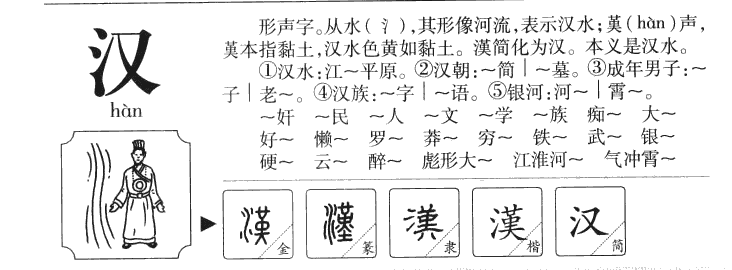 汉
hàn
形声字。从水(氵),其形像河流,表示汉水;莫(hàn)声,
莫本指黏土,汉水色黄如黏土。漢简化为汉。本义是汉水。
①汉水:江～平原。②汉朝:～简｜～墓。③成年男子:～
子｜老～。④汉族:～字｜～语。⑤银河:河～｜霄～。
～奸 ～民 ～人 ～文 ～学 ～族 痴～ 大～
好～ 懒～ 罗～ 莽～ 穷～ 铁～ 武～ 银～
硬～ 云～ 醉～ 彪形大～ 江淮河～ 气冲霄～
漢 金 漢 篆 漢 隶 漢 楷 汉 简